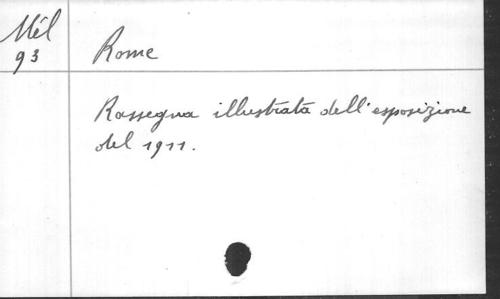 Mél
93
Rome
Rassegna illustrata dell'esposizione
del 1911.